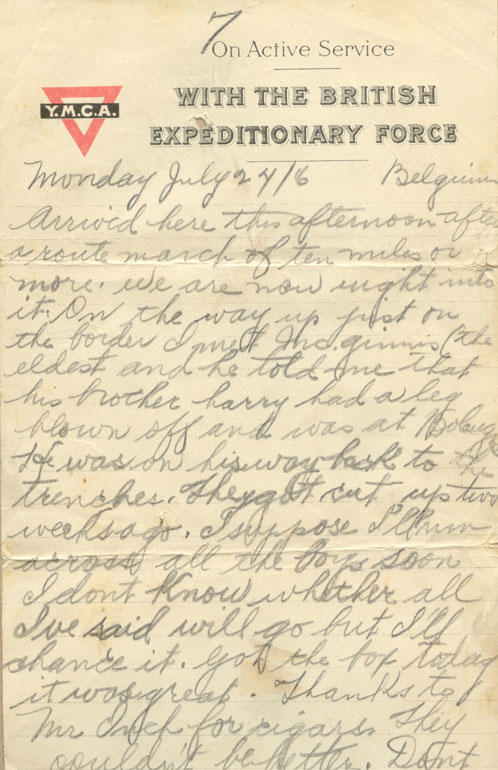 7
On Active Service
WITH THE BRITISH
EXPEDITIONARY FORCE
Y.M.C.A.
Monday July 24/6 Belgium
Arrived here this afternoon after
a route march of ten miles or
more. we are now right into
it. On the way up just on
the border I met McGinnis (the
eldest and he told me that
his brother harry had a leg
blown off and was at
He was on his way back to the
trenches. They got cut up two
weeks ago. I suppose I'll run
across all the boys soon
I dont know whether all
I've said will go but I'll
chance it. Got the box today
it was great. Thanks to
Mr. for cigars. They
couldn't be better. Dont